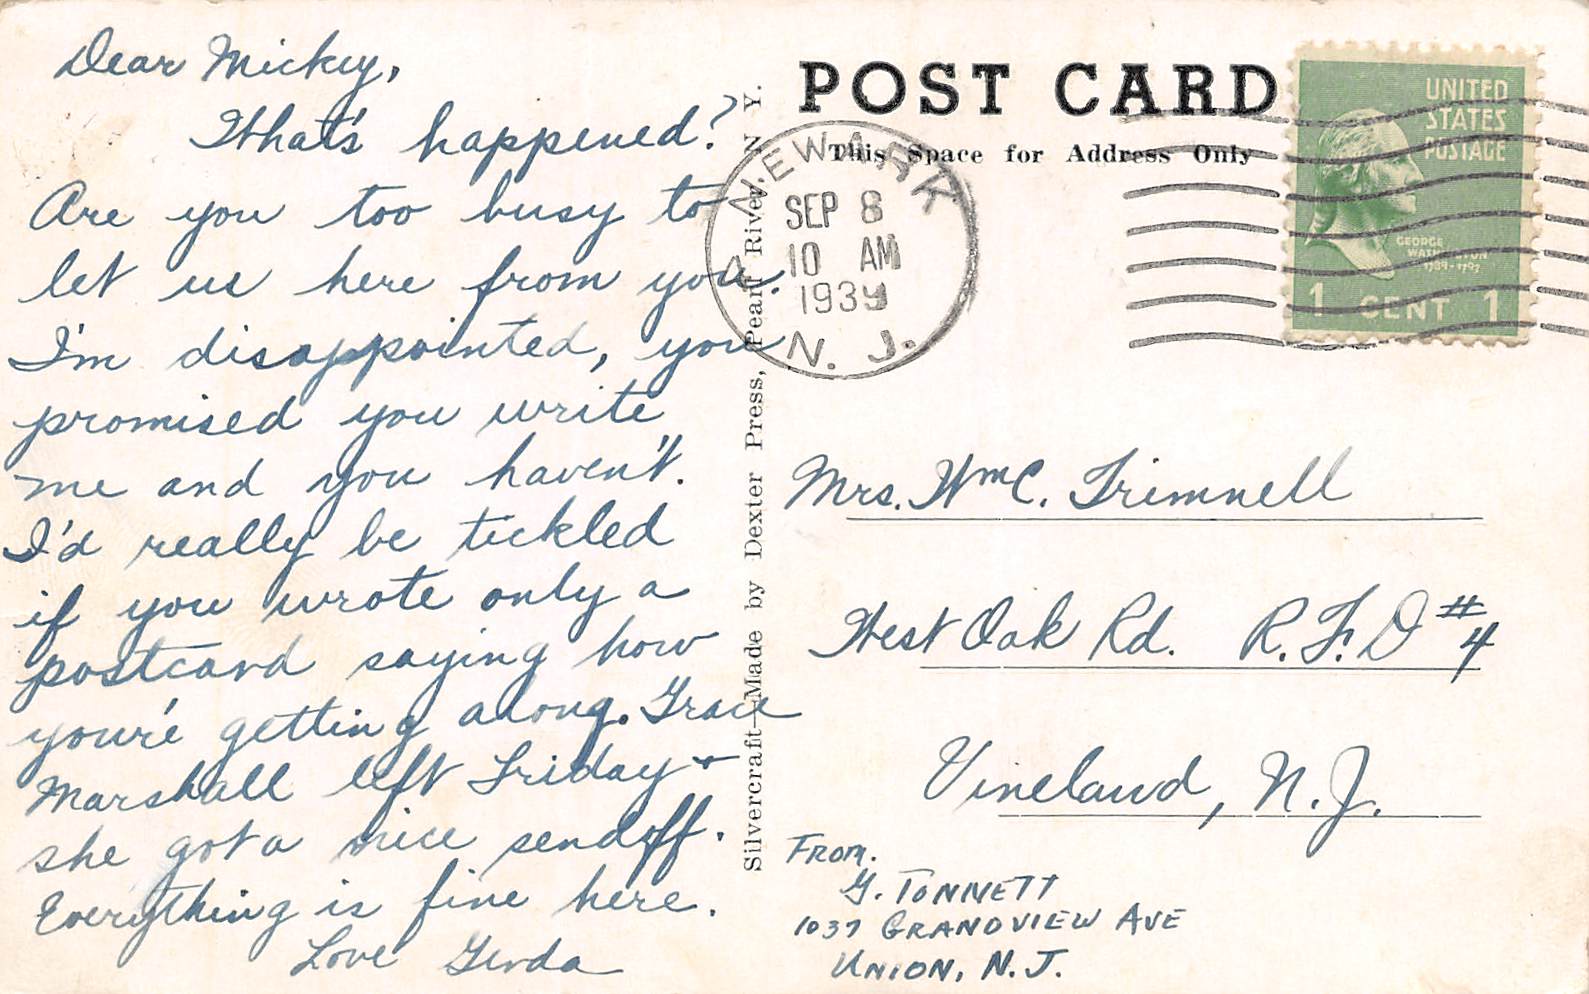 Dear Mickey,
What's happened?
Are you too busy to
let us here from you.
I'm disappointed, you
promised you write
me and you haven't.
I'd really be tickled
if you wrote only a
postcard saying how
your'e getting along. Grace
Marshall left Friday +
she got a nice sendoff.
Everything is fine here.
Love Gerda
Silvercraft—Made by Dexter Press, Pearl River, N. Y.
POST CARD
This Space for Address Only
NEWARK
SEP 8
10 AM
1939
N. J.
UNITED
STATES
POSTAGE
GEORGE
WASHINGTON
1789-1797
1 CENT 1
Mrs. Wm C. Trimnell
West Oak Rd. R.F.D #4
Vineland, N.J.
FROM.
G. TONNETT
1037 GRANDVIEW AVE
UNION, N.J.